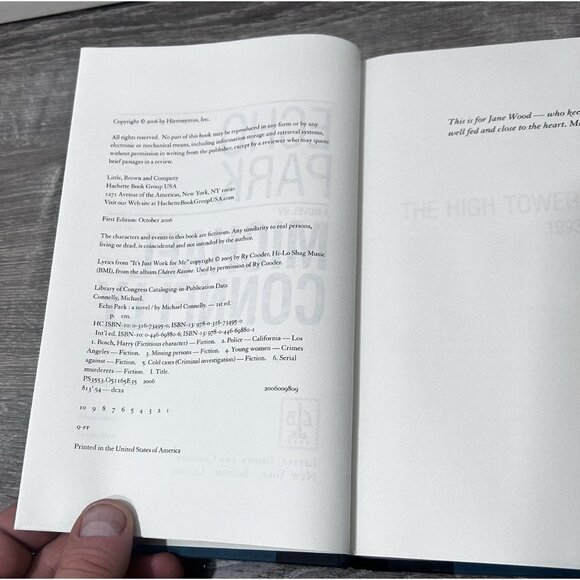 Copyright © 2006 by Hieronymus, Inc.
All rights reserved. No part of this book may be reproduced in any form or by any
electronic or mechanical means, including information storage and retrieval systems,
without permission in writing from the publisher, except by a reviewer who may quote
brief passages in a review.
Little, Brown and Company
Hachette Book Group USA
1271 Avenue of the Americas, New York, NY 10020
Visit our Web site at HachetteBookGroupUSA.com
First Edition: October 2006
The characters and events in this book are fictitious. Any similarity to real persons,
living or dead, is coincidental and not intended by the author.
Lyrics from "It's Just Work for Me" copyright © 2005 by Ry Cooder, Hi-Lo Shag Music
(BMI), from the album Chávez Ravine. Used by permission of Ry Cooder.
Library of Congress Cataloging-in-Publication Data
Connelly, Michael.
Echo Park : a novel / by Michael Connelly. — 1st ed.
p. cm.
HC ISBN-10: 0-316-73495-0; ISBN-13: 978-0-316-73495-0
Int'l ed. ISBN-10: 0-446-69880-6; ISBN-13: 978-0-446-69880-1
1. Bosch, Harry (Fictitious character) — Fiction. 2. Police — California — Los
Angeles — Fiction. 3. Missing persons — Fiction. 4. Young women — Crimes
against — Fiction. 5. Cold cases (Criminal investigation) — Fiction. 6. Serial
murderers — Fiction. I. Title.
PS3553.O51165E35 2006
813'.54 — dc22 2006009809
10 9 8 7 6 5 4 3 2 1
Q-FF
Printed in the United States of America
This is for Jane Wood — who kee
well fed and close to the heart. M